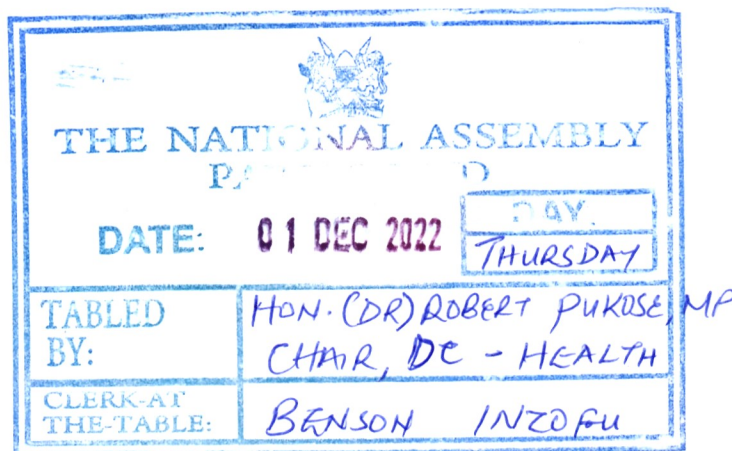 THE NATIONAL ASSEMBLY
DATE: 01 DEC 2022
DAY
THURSDAY
TABLED BY:
HON. (DR) ROBERT PUKOSE, MP
CHAIR, DC - HEALTH
CLERK-AT THE-TABLE:
BENSON INZOFU